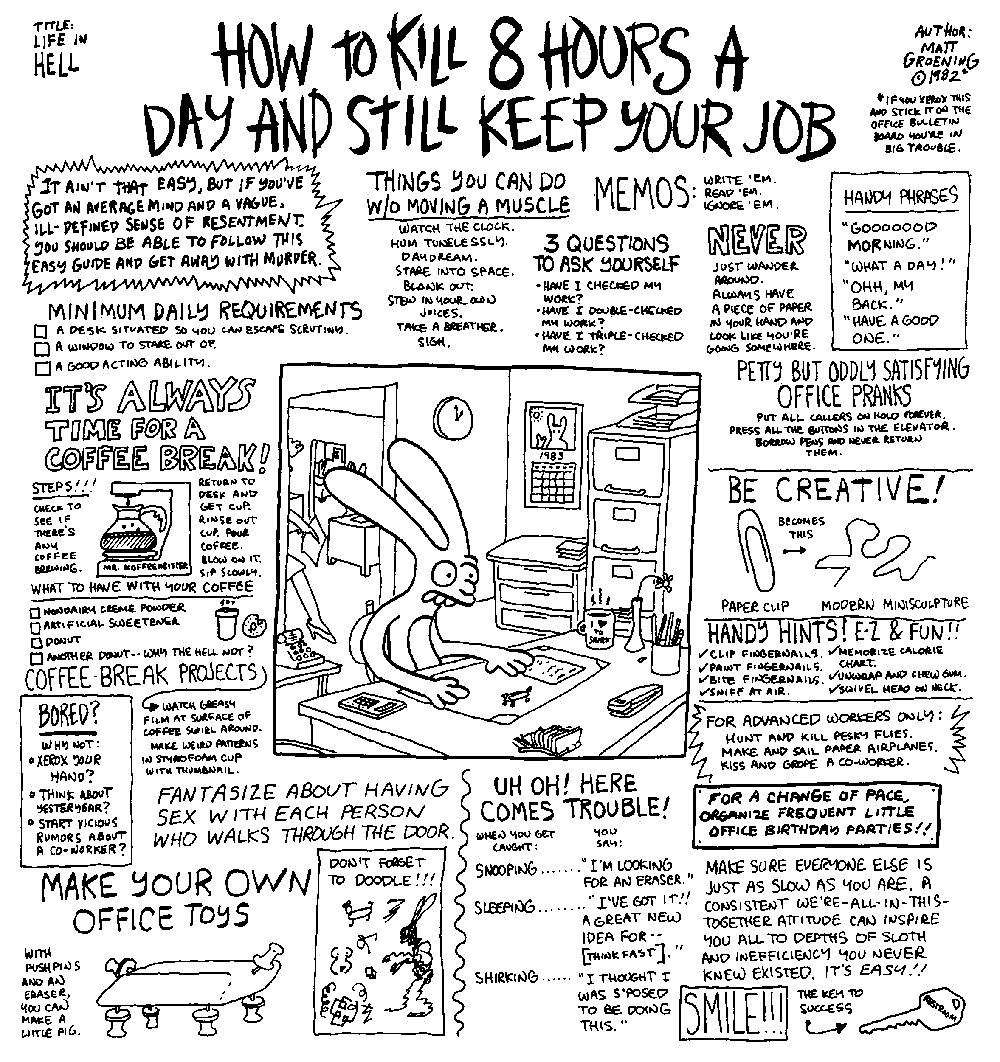 TITLE:
LIFE IN
HELL
HOW TO KILL 8 HOURS A
DAY AND STILL KEEP YOUR JOB
AUTHOR:
MATT
GROENING
©1982*
*IF YOU XEROX THIS
AND STICK IT ON THE
OFFICE BULLETIN
BOARD YOU'RE IN
BIG TROUBLE.
IT AIN'T THAT EASY, BUT IF YOU'VE
GOT AN AVERAGE MIND AND A VAGUE,
ILL-DEFINED SENSE OF RESENTMENT,
YOU SHOULD BE ABLE TO FOLLOW THIS
EASY GUIDE AND GET AWAY WITH MURDER.
MINIMUM DAILY REQUIREMENTS
A DESK SITUATED SO YOU CAN ESCAPE SCRUTINY.
A WINDOW TO STARE OUT OF.
A GOOD ACTING ABILITY.
THINGS YOU CAN DO
W/O MOVING A MUSCLE
WATCH THE CLOCK.
HUM TUNELESSLY.
DAYDREAM.
STARE INTO SPACE.
BLANK OUT.
STEW IN YOUR OWN
JUICES.
TAKE A BREATHER.
SIGH.
MEMOS:
WRITE 'EM.
READ 'EM.
IGNORE 'EM.
3 QUESTIONS
TO ASK YOURSELF
•HAVE I CHECKED MY
WORK?
•HAVE I DOUBLE-CHECKED
MY WORK?
•HAVE I TRIPLE-CHECKED
MY WORK?
NEVER
JUST WANDER
AROUND.
ALWAYS HAVE
A PIECE OF PAPER
IN YOUR HAND AND
LOOK LIKE YOU'RE
GOING SOMEWHERE.
HANDY PHRASES
"GOOOOOOD
MORNING."
"WHAT A DAY!"
"OHH, MY
BACK."
"HAVE A GOOD
ONE."
IT'S ALWAYS
TIME FOR A
COFFEE BREAK!
STEPS!!!
CHECK TO
SEE IF
THERE'S
ANY
COFFEE
BREWING.
MR. KOFFEEMEISTER
RETURN TO
DESK AND
GET CUP.
RINSE OUT
CUP. POUR
COFFEE.
BLOW ON IT.
SIP SLOWLY.
WHAT TO HAVE WITH YOUR COFFEE
NONDAIRY CREME POWDER
ARTIFICIAL SWEETENER
DONUT
ANOTHER DONUT--WHY THE HELL NOT?
COFFEE-BREAK PROJECTS
WATCH GREASY
FILM AT SURFACE OF
COFFEE SWIRL AROUND.
MAKE WEIRD PATTERNS
IN STYROFOAM CUP
WITH THUMBNAIL.
BORED?
WHY NOT:
•XEROX YOUR
HAND?
•THINK ABOUT
YESTERYEAR?
•START VICIOUS
RUMORS ABOUT
A CO-WORKER?
1983
PETTY BUT ODDLY SATISFYING
OFFICE PRANKS
PUT ALL CALLERS ON HOLD FOREVER.
PRESS ALL THE BUTTONS IN THE ELEVATOR.
BORROW PENS AND NEVER RETURN
THEM.
BE CREATIVE!
BECOMES
THIS
PAPER CLIP
MODERN MINISCULPTURE
HANDY HINTS! E-Z & FUN!!
✓CLIP FINGERNAILS.
✓PAINT FINGERNAILS.
✓BITE FINGERNAILS.
✓SNIFF AT AIR.
✓MEMORIZE CALORIE
CHART.
✓UNWRAP AND CHEW GUM.
✓SWIVEL HEAD ON NECK.
FOR ADVANCED WORKERS ONLY:
HUNT AND KILL PESKY FLIES.
MAKE AND SAIL PAPER AIRPLANES.
KISS AND GROPE A CO-WORKER.
FOR A CHANGE OF PACE,
ORGANIZE FREQUENT LITTLE
OFFICE BIRTHDAY PARTIES!!
FANTASIZE ABOUT HAVING
SEX WITH EACH PERSON
WHO WALKS THROUGH THE DOOR.
UH OH! HERE
COMES TROUBLE!
WHEN YOU GET
CAUGHT:
YOU
SAY:
SNOOPING......."I'M LOOKING
FOR AN ERASER."
SLEEPING........"I'VE GOT IT!!
A GREAT NEW
IDEA FOR--
[THINK FAST]."
SHIRKING......"I THOUGHT I
WAS S'POSED
TO BE DOING
THIS."
MAKE YOUR OWN
OFFICE TOYS
WITH
PUSHPINS
AND AN
ERASER,
YOU CAN
MAKE A
LITTLE PIG.
DON'T FORGET
TO DOODLE!!!
MAKE SURE EVERYONE ELSE IS
JUST AS SLOW AS YOU ARE. A
CONSISTENT WE'RE-ALL-IN-THIS-
TOGETHER ATTITUDE CAN INSPIRE
YOU ALL TO DEPTHS OF SLOTH
AND INEFFICIENCY YOU NEVER
KNEW EXISTED. IT'S EASY!!
SMILE!!!
THE KEY TO
SUCCESS
RESTROOM